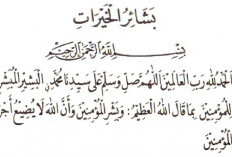 بَشَائِرُ الْخَيْرَاتِ
بِسْمِ اللهِ الرَّحْمٰنِ الرَّحِيْمِ
اَلْحَمْدُ لِلّٰهِ رَبِّ الْعَالَمِيْنَ اَللّٰهُمَّ صَلِّ وَسَلِّمْ عَلَى سَيِّدِنَا مُحَمَّدٍ الْبَشِيْرِ الْمُبَشِّرِ
لِلْمُؤْمِنِيْنَ بِمَا قَالَ اللهُ الْعَظِيْمُ: وَبَشِّرِ الْمُؤْمِنِيْنَ وَأَنَّ اللهَ لَا يُضِيْعُ أَجْرَ
الْمُؤْمِنِيْنَ